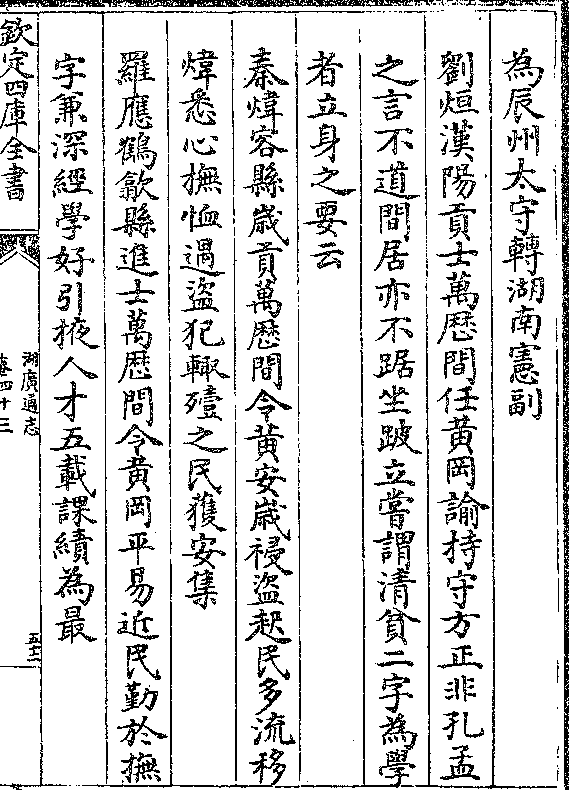 為辰州太守轉湖南憲副
劉烜漢陽貢士萬歴間任黄岡諭持守方正非孔孟
之言不道間居亦不踞坐跛立嘗謂清貧二字為學
者立身之要云
秦煒容縣歳貢萬歴間令黄安歳祲盗起民多流移
煒悉心撫恤遇盗犯輙殪之民獲安集
羅應鶴歙縣進士萬歴間令黄岡平易近民勤於撫
字兼深經學好引掖人才五載課績為最
欽定四庫全書
湖廣通志
卷四十三
五十二